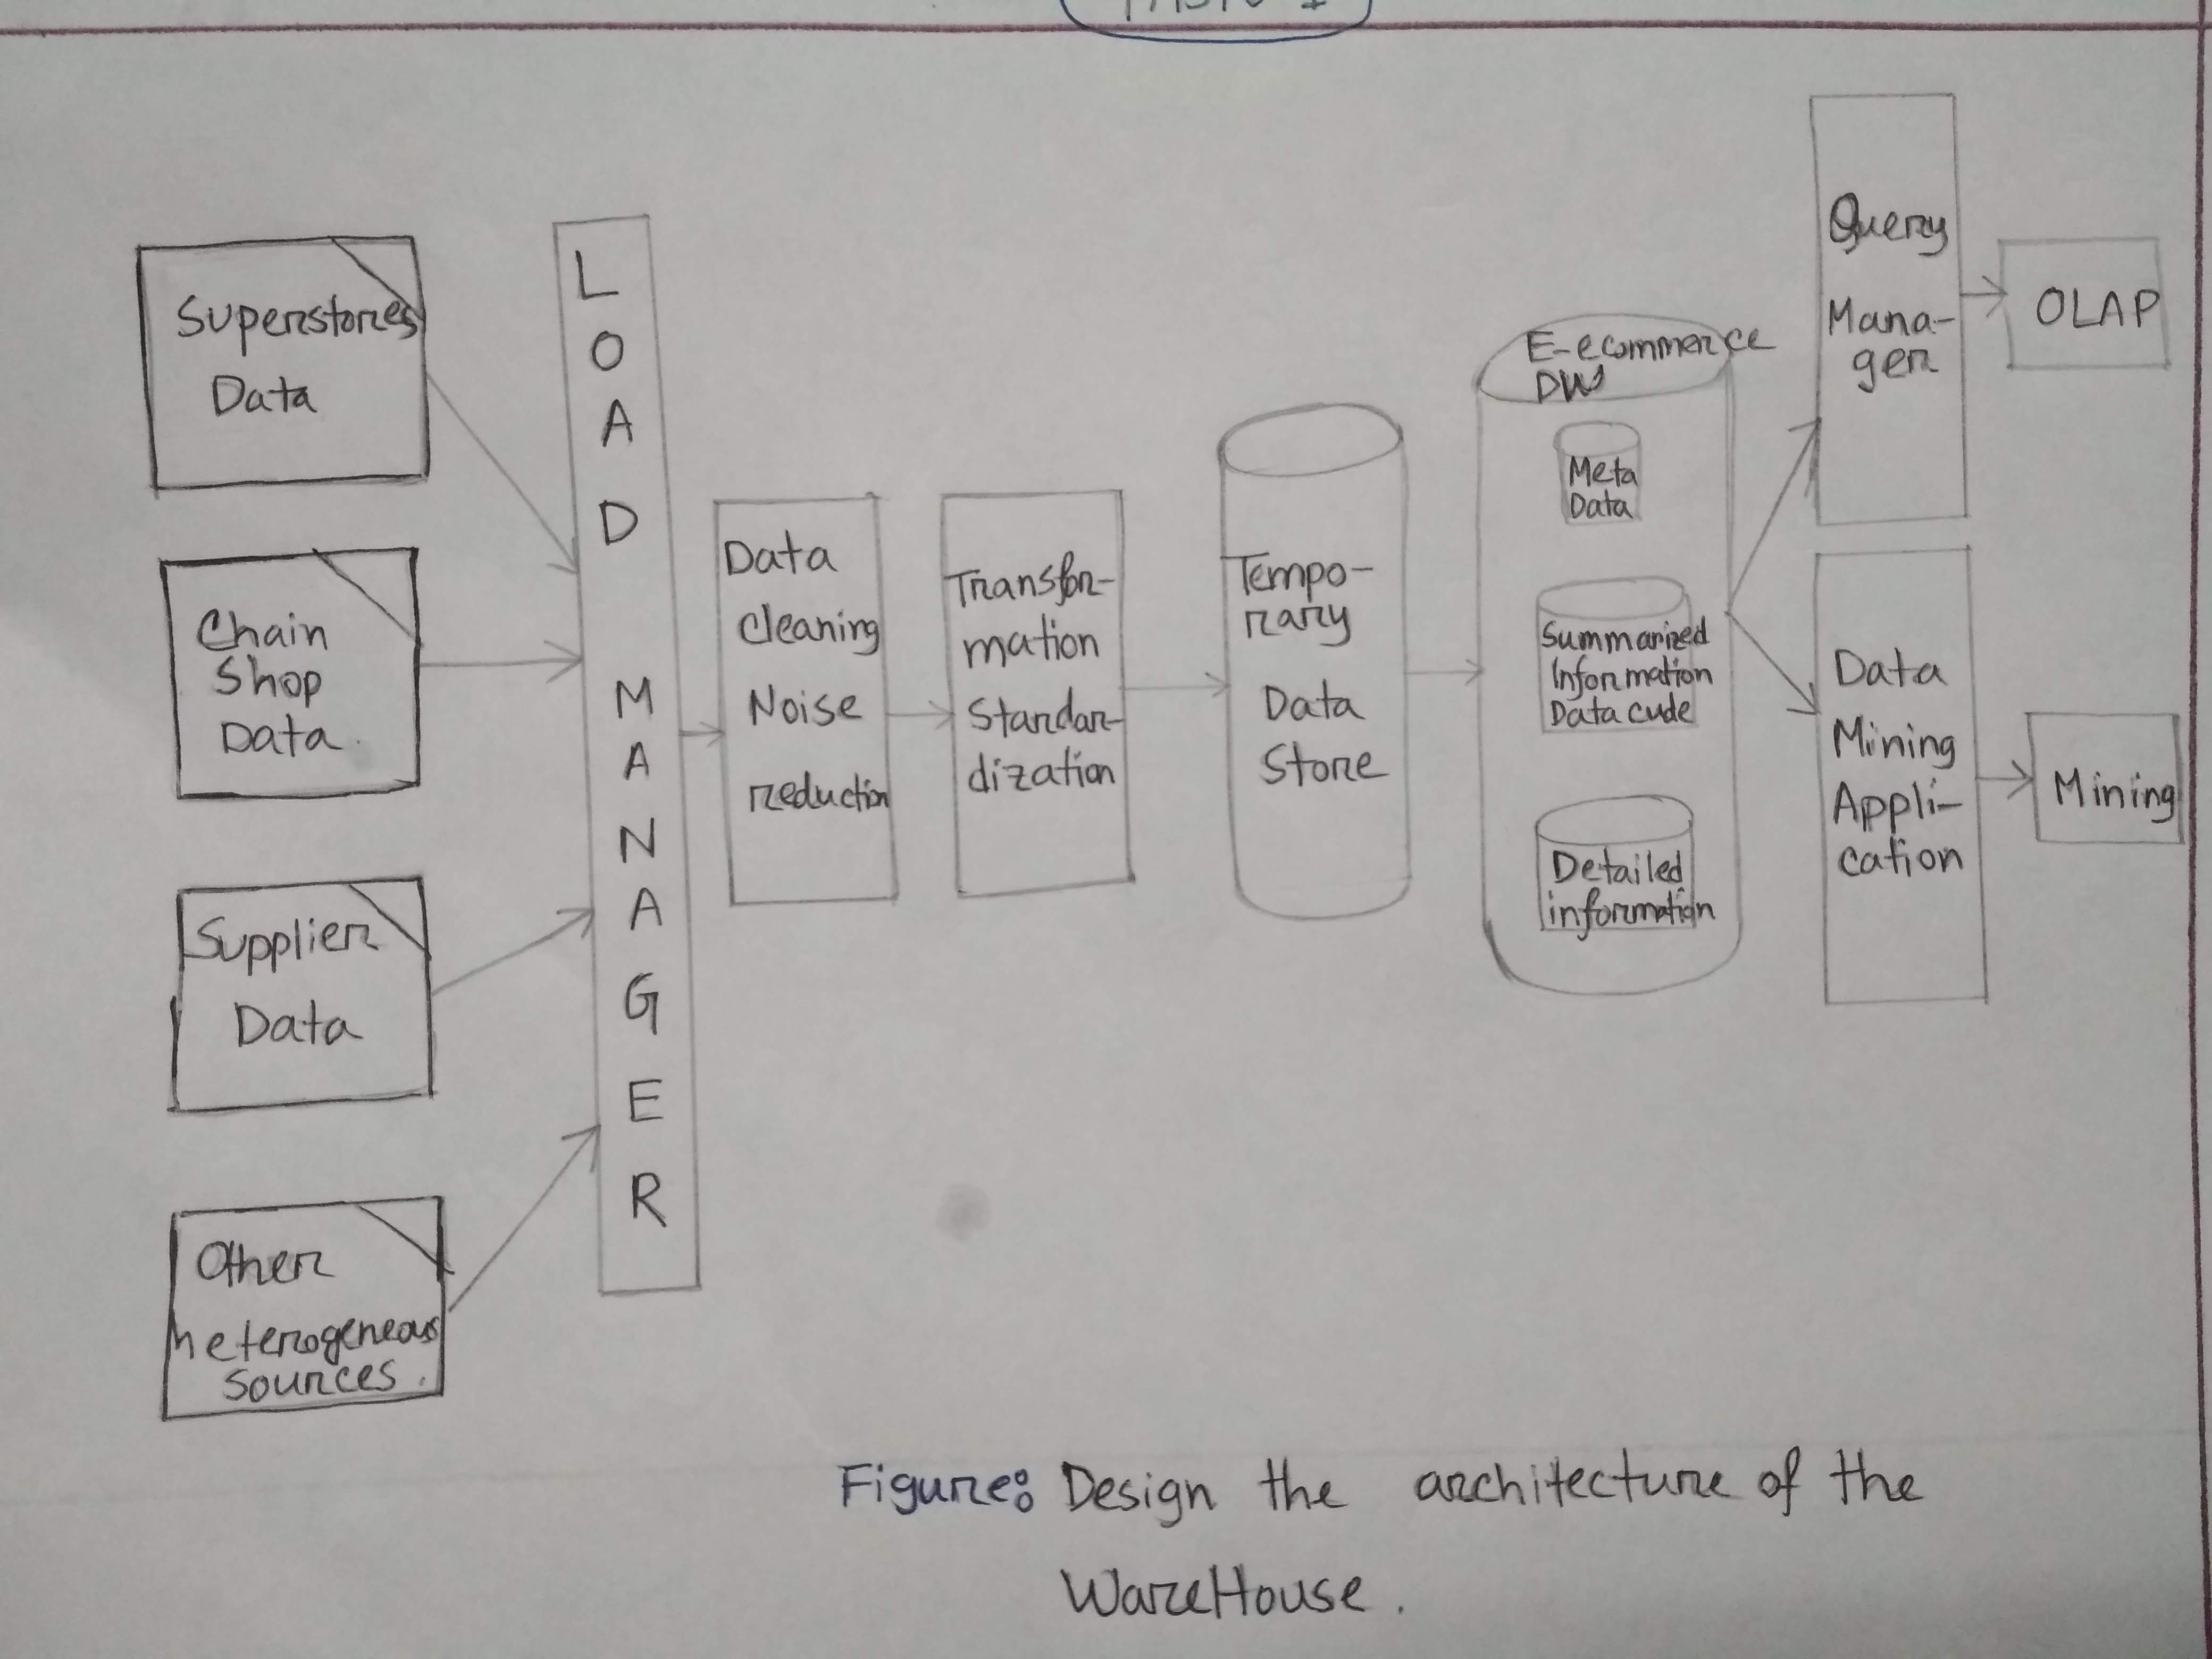 TASK 1
Superstores
Data
Chain
Shop
Data.
Supplier
Data
Other
heterogeneous
sources.
LOAD MANAGER
Data
cleaning
Noise
reduction
Transfor-
mation
Standar-
dization
Tempo-
rary
Data
Store
E-ecommerce
DW
Meta
Data
Summarized
Information
Data cude
Detailed
information
Query
Mana-
ger
OLAP
Data
Mining
Appli-
cation
Mining
Figure: Design the architecture of the
WareHouse.